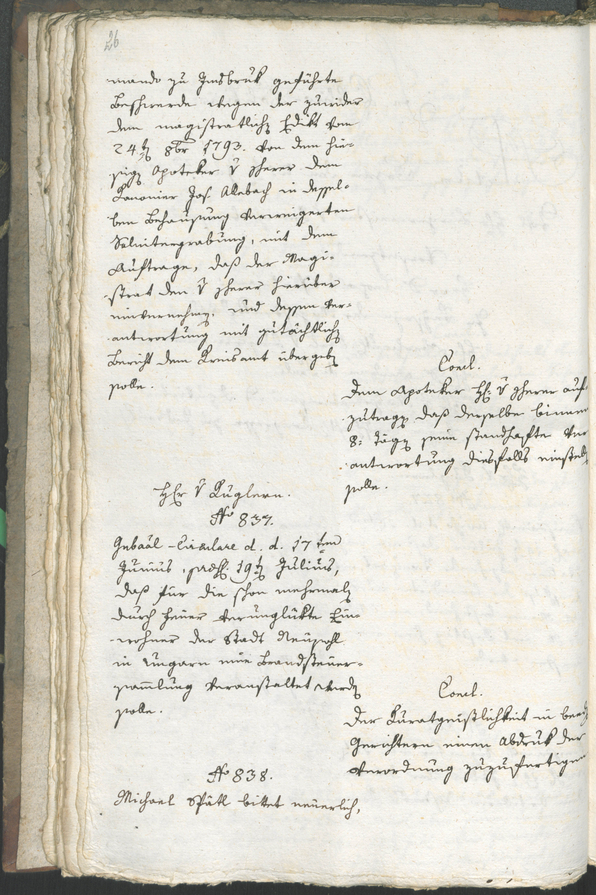 26
mando zu Insbruk geführte
Beschwerde wegen der zuwider
dem magistratlichen Edikt vom
24ten 8br 1793. von dem hie-
sigen Apoteker v Scherer dem
Kanonier Jos. Allebach in dessel-
ben Behausung verweigerten
Saliitergrabung, mit dem
Auftrage, daß der Magi-
strat den v Scherer hierüber
einvernehmen, und dessen Ver-
antwortung mit gutächtlichen
Bericht dem Kreisamt übergeben
solle.
Concl.
Dem Apoteker Hn v Scherer auf-
zutragen, daß derselbe binnen
8: Tägen seine standhafte Ver
antwortung diesfalls einstellen
solle.
Hr v Kuglern.
No 837.
Gubaal-Circulare d. d. 17ten
Junius, præs. 19ten Julius,
daß für die schon mehrmalen
durch Feuer verunglükte Ein-
wohner der Stadt Neusohl
in Ungarn eine Brandsteuer-
sammlung veranstaltet werden
solle.
Concl.
Der Kuratgeistlichkeit in beeden
Gerichtern einen Abdruk der
Verordnung zuzufertigen
No 838.
Michael Spätl bittet neuerlich,